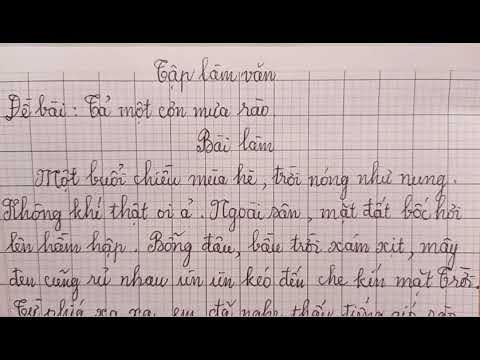 Tập làm văn
Đề bài : Tả một cơn mưa rào
Bài làm
Một buổi chiều mùa hè, trời nóng như nung.
Không khí thật oi ả. Ngoài sân, mặt đất bốc hơi
lên hầm hập. Bỗng đâu, bầu trời xám xịt, mây
đen cũng rủ nhau ùn ùn kéo đến che kín mặt Trời.
Từ phía xa xa, em đã nghe thấy tiếng gió